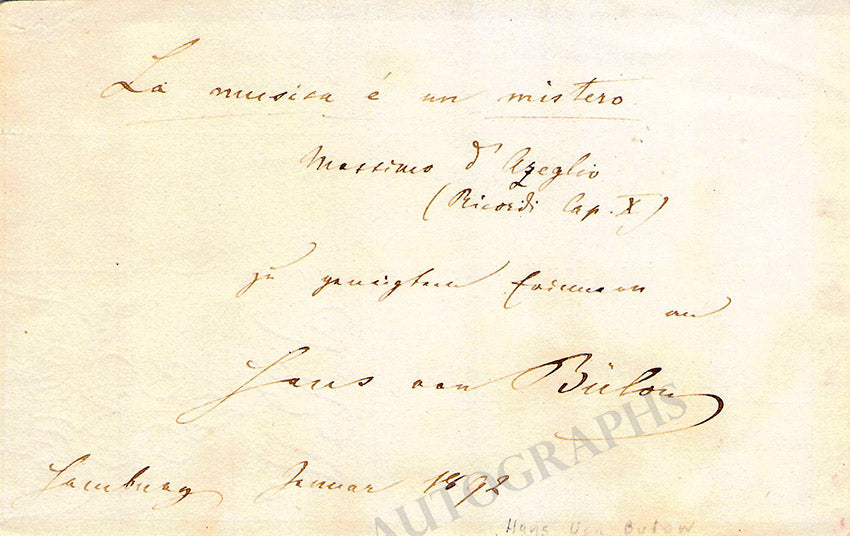 La musica é un mistero.
Massimo d'Azeglio
(Ricordi Cap. X)
zu geneigtem Erinnern
an
Hans von Bülow
Hamburg Januar 1892
AUTOGRAPHS
Hans Von Bulow